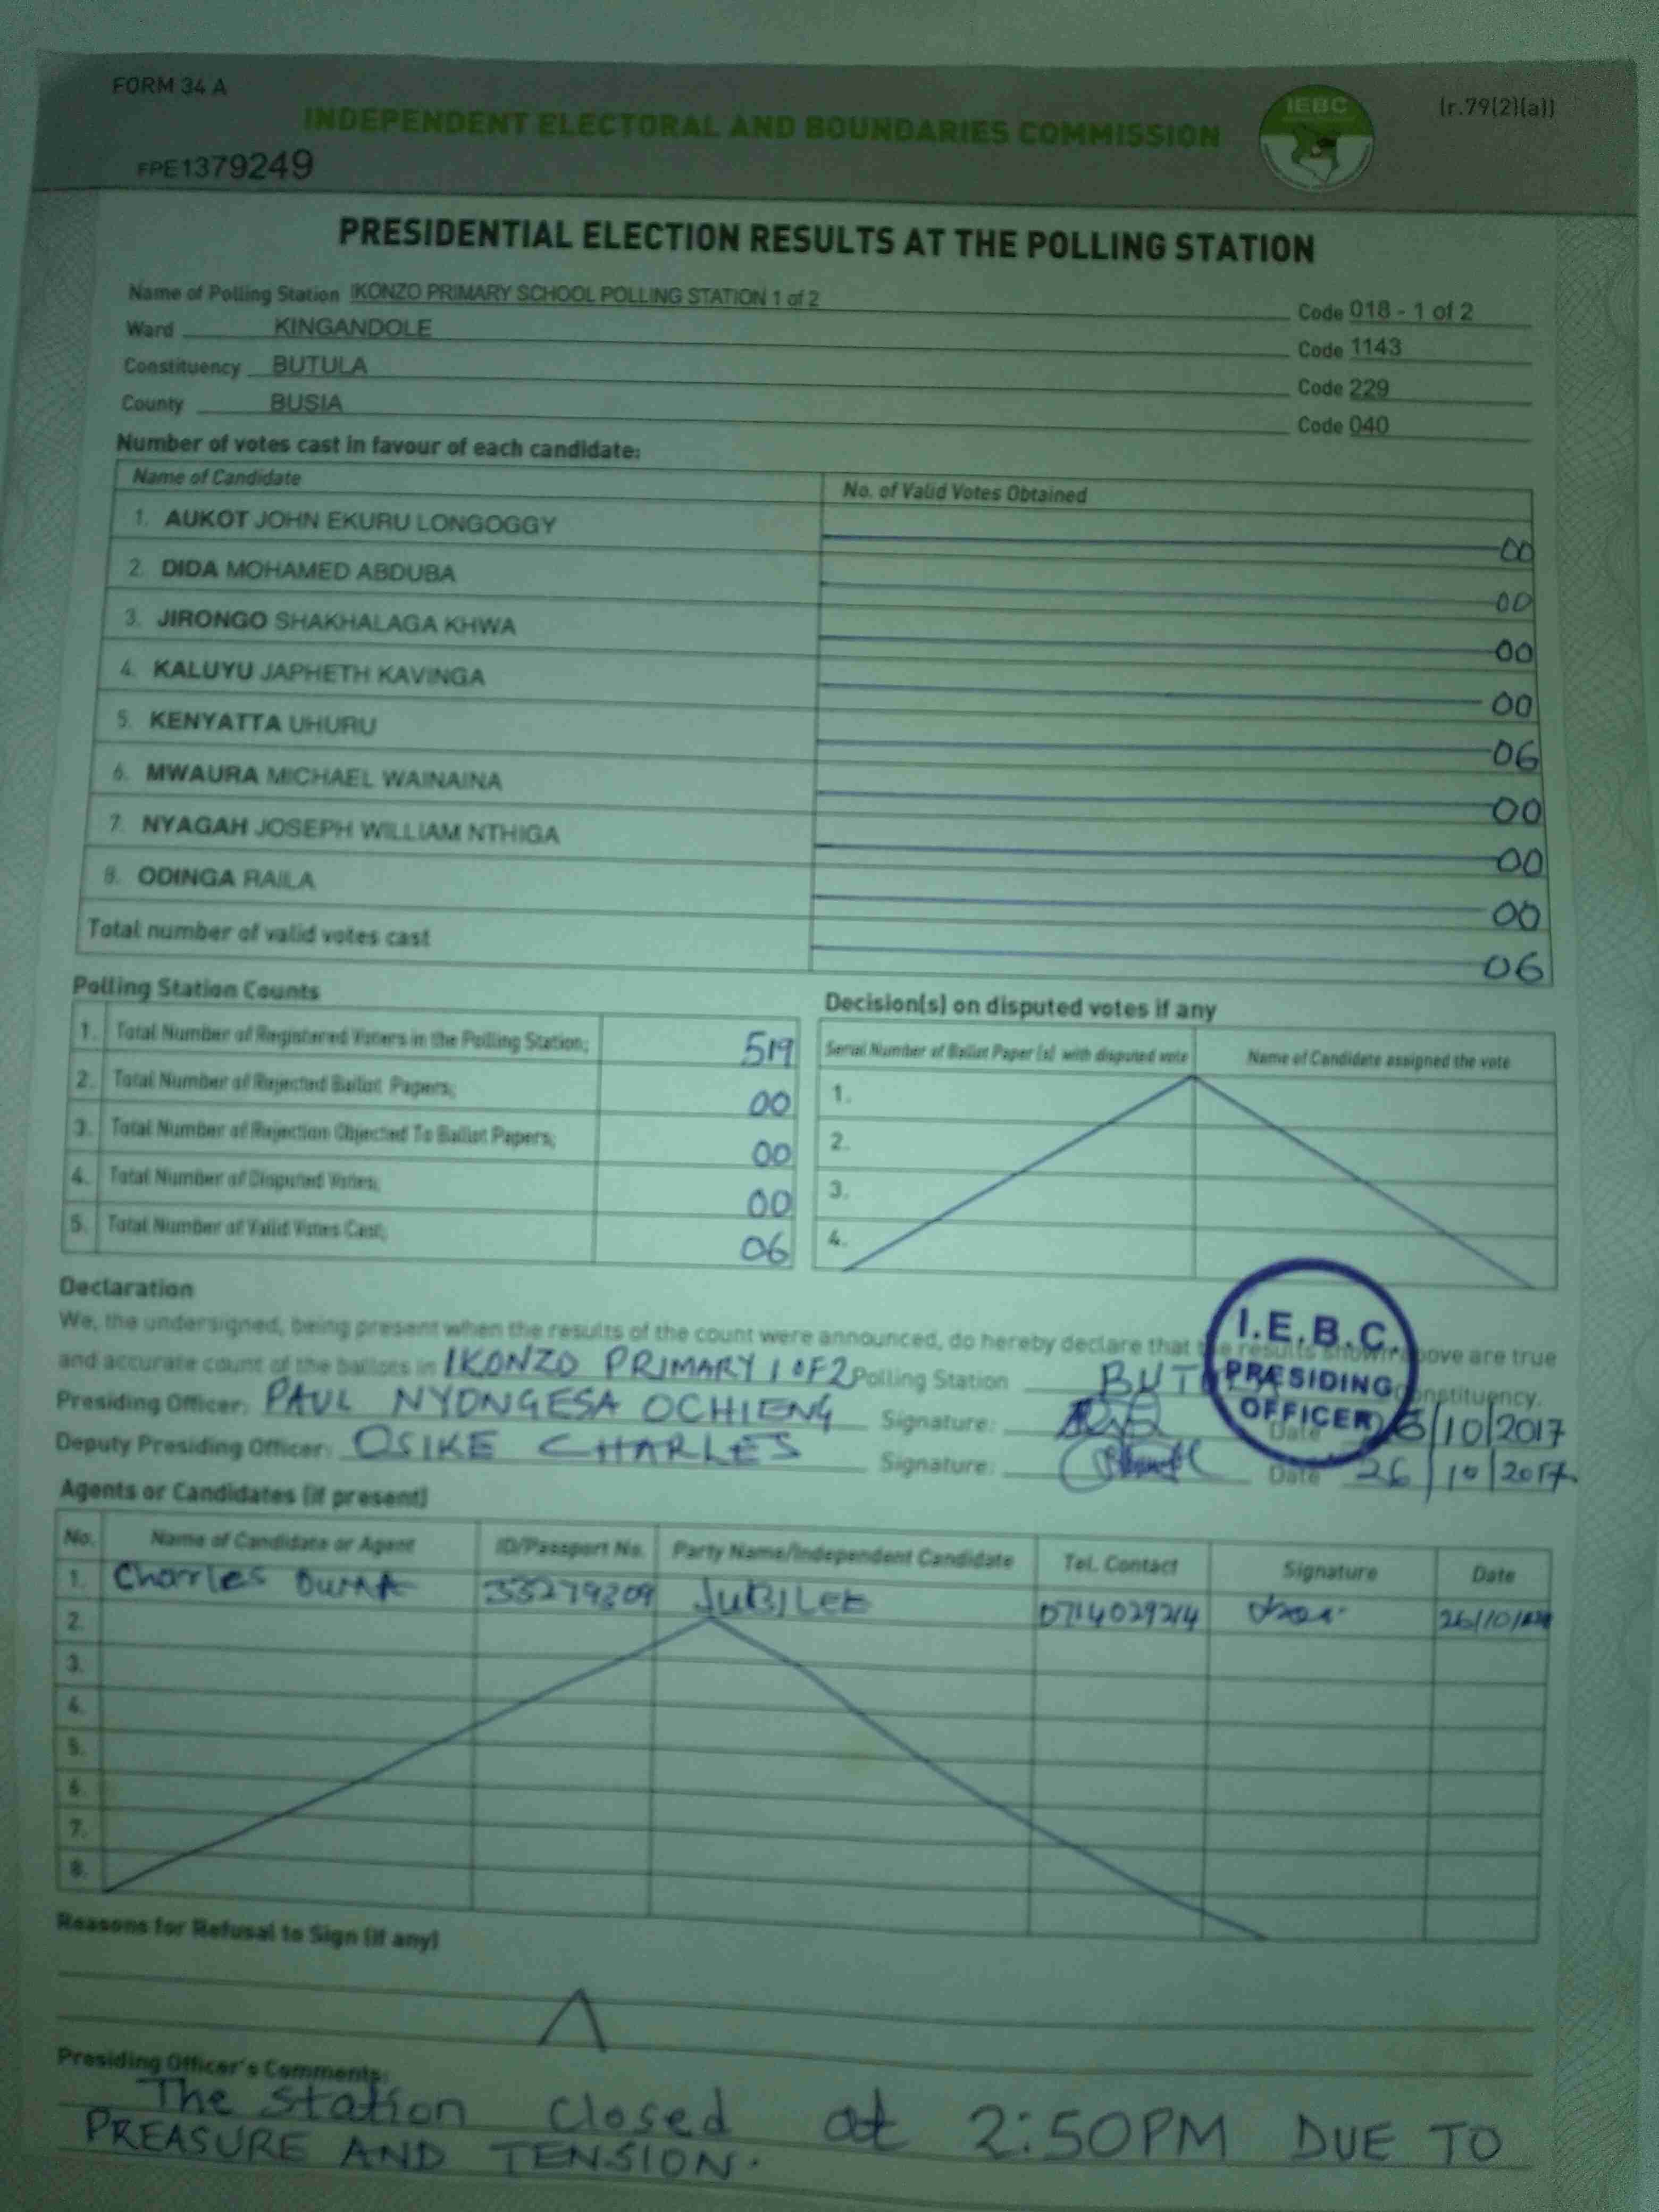 FORM 34 A
(r.79(2)(a))
INDEPENDENT ELECTORAL AND BOUNDARIES COMMISSION
IEBC
FPE1379249
PRESIDENTIAL ELECTION RESULTS AT THE POLLING STATION
Name of Polling Station IKONZO PRIMARY SCHOOL POLLING STATION 1 of 2 Code 018 - 1 of 2
Ward KINGANDOLE Code 1143
Constituency BUTULA Code 229
County BUSIA Code 040
Number of votes cast in favour of each candidate:
Name of Candidate No. of Valid Votes Obtained
1. AUKOT JOHN EKURU LONGOGGY 00
2. DIDA MOHAMED ABDUBA 00
3. JIRONGO SHAKHALAGA KHWA 00
4. KALUYU JAPHETH KAVINGA 00
5. KENYATTA UHURU 06
6. MWAURA MICHAEL WAINAINA 00
7. NYAGAH JOSEPH WILLIAM NTHIGA 00
8. ODINGA RAILA 00
Total number of valid votes cast 06
Polling Station Counts
1. Total Number of Registered Voters in the Polling Station; 519
2. Total Number of Rejected Ballot Papers; 00
3. Total Number of Rejection Objected To Ballot Papers; 00
4. Total Number of Disputed Votes; 00
5. Total Number of Valid Votes Cast; 06
Decision(s) on disputed votes if any
Serial Number of Ballot Paper (s) with disputed vote Name of Candidate assigned the vote
1.
2.
3.
4.
Declaration
We, the undersigned, being present when the results of the count were announced, do hereby declare that the results shown above are true
and accurate count of the ballots in IKONZO PRIMARY 1 OF 2 Polling Station BUT Constituency.
I.E.B.C.
PRESIDING
OFFICER
Presiding Officer: PAUL NYONGESA OCHIENG Signature: Date 26/10/2017
Deputy Presiding Officer: OSIKE CHARLES Signature: Date 26/10/2017
Agents or Candidates (if present)
No. Name of Candidate or Agent ID/Passport No. Party Name/Independent Candidate Tel. Contact Signature Date
1. Charles 33279309 JUBILEE 0714029214 26/10/
2.
3.
4.
5.
6.
7.
8.
Reasons for Refusal to Sign (if any)
Presiding Officer's Comments:
The station closed at 2:50PM DUE TO
PREASURE AND TENSION.